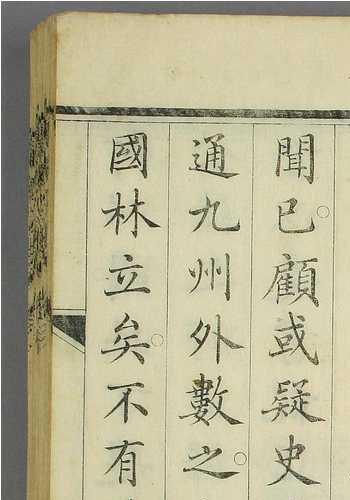 聞已。顧或疑史
通九州外數之。
國林立矣。不有